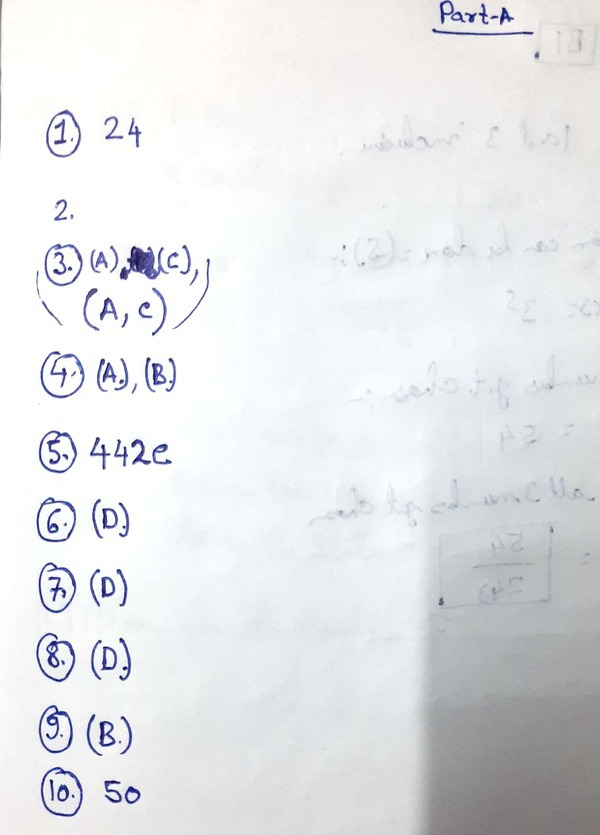 Part-A
1. 24
2.
3. (A), (C),
(A, C)
4. (A.), (B.)
5. 442e
6. (D.)
7. (D)
8. (D.)
9. (B.)
10. 50